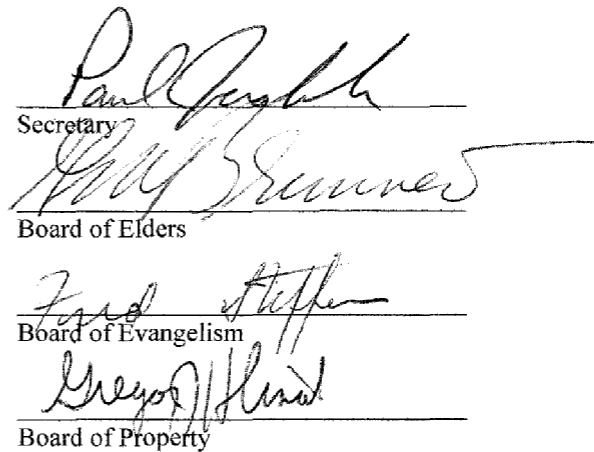 Paul
Secretary
Brunner
Board of Elders
Fred Steffen
Board of Evangelism
Gregory
Board of Property